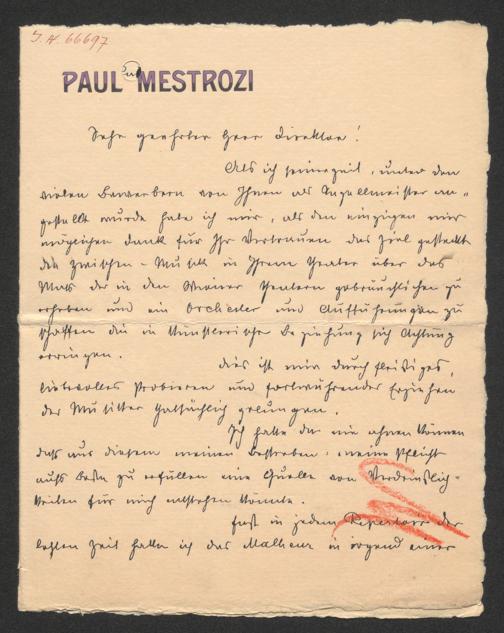 J.N. 66697
PAUL MESTROZI
Sehr geehrter Herr Direktor!
Als ich seinerzeit, unter den
vielen Bewerbern von Ihnen als Kapellmeister an-
gestellt wurde habe ich mir, als den einzigen mir
möglichen Dank für Ihr Vertrauen das Ziel gesteckt
die Zwischen-Musik in Ihrem Theater über das
Maß der in den Wiener Theatern gebräuchlichen zu
erheben und ein Orchester und Aufführungen zu
schaffen die in künstlerischer Beziehung sich Achtung
erringen.
Dies ist mir durch fleißiges,
liebevolles Probieren und fortwährendes Erziehen
der Musiker thatsächlich gelungen.
Ich hatte da nie ahnen können
daß aus diesem meinen Bestreben, meine Pflicht
aufs Beste zu erfüllen eine Quelle von Verdrießlich-
keiten für mich entstehen könnte.
Fast in jedem Repertoir der
letzten Zeit hatte ich das Malheur in irgend einer